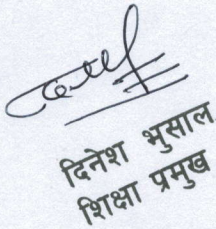 दिनेश भुसाल
शिक्षा प्रमुख